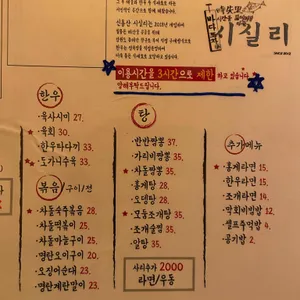 시실리
이용시간을 3시간으로 제한 하고 있습니다.
양해부탁드립니다.
한우
육사시미 27.
육회 30.
한우타다끼 33.
도가니수육 33.
볶음/구이/전
차돌숙주볶음 28.
차돌떡볶이 25.
차돌마늘구이 25.
명란오이구이 20.
오징어순대 23.
명란계란말이 23.
탕
반반짬뽕 37.
가리비짬뽕 35.
차돌짬뽕 35.
홍게탕 28.
오뎅탕 28.
모듬조개탕 35.
조개술찜 35.
알탕 35.
사리추가 2000
라면/우동
추가메뉴
홍게라면 15.
한우라면 15.
조개라면 14.
막회비빔밥 12.
셀프주먹밥 4.
공기밥 2.